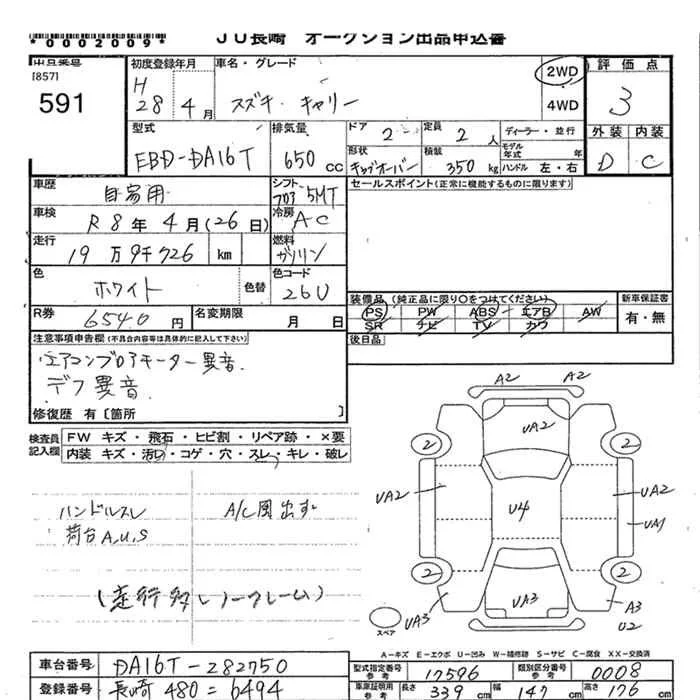 *0002009*
JU長崎 オークション出品申込書
出品番号
[857]
591
初度登録年月
H 28年 4月
車名・グレード
スズキ・キャリー
2WD
4WD
評価点
3
外装 内装
D C
型式
EBD-DA16T
排気量
650 cc
ドア 2
定員 2人
ディーラー・並行
形状
キャブオーバー
積装 350 kg
モデル年式 年
ハンドル 左・右
車歴
自家用
シフト
フロア 5MT
セールスポイント(正常に機能するものに限ります)
車検
R 8年 4月(26日)
冷房
AC
走行
19万9千726 km
燃料
ガソリン
色
ホワイト
色替
色コード
26U
装備品(純正品に限り○をつけてください)
PS PW ABS エアB AW
SR ナビ TV カワ
新車保証書
有・無
R券
6540円
名変期限
月 日
後日品
注意事項申告欄(不具合内容等は具体的に記入して下さい)
エアコンブロアモーター異音.
デフ異音.
修復歴 有〔箇所 〕
検査員記入欄
FW キズ・飛石・ヒビ割・リペア跡・×要
内装 キズ・汚れ・コゲ・穴・スレ・キレ・破レ
ハンドルスレ
荷台A.U.S
A/C風出ず
(走行多しノークレーム)
A2 A2
UA2
2 2
UA2 U4 UA2
UA1
2 2
UA3 UA3 A3
U2
スペア
A-キズ E-エクボ U-凹み W-補修跡 S-サビ C-腐食 XX-交換済
車台番号
DA16T-282750
登録番号
長崎 480 = 6494
型式指定番号
参考
17596
類別区分番号
参考
0008
車庫証明用
参考
長さ 339 幅 147 高さ 176
cm cm